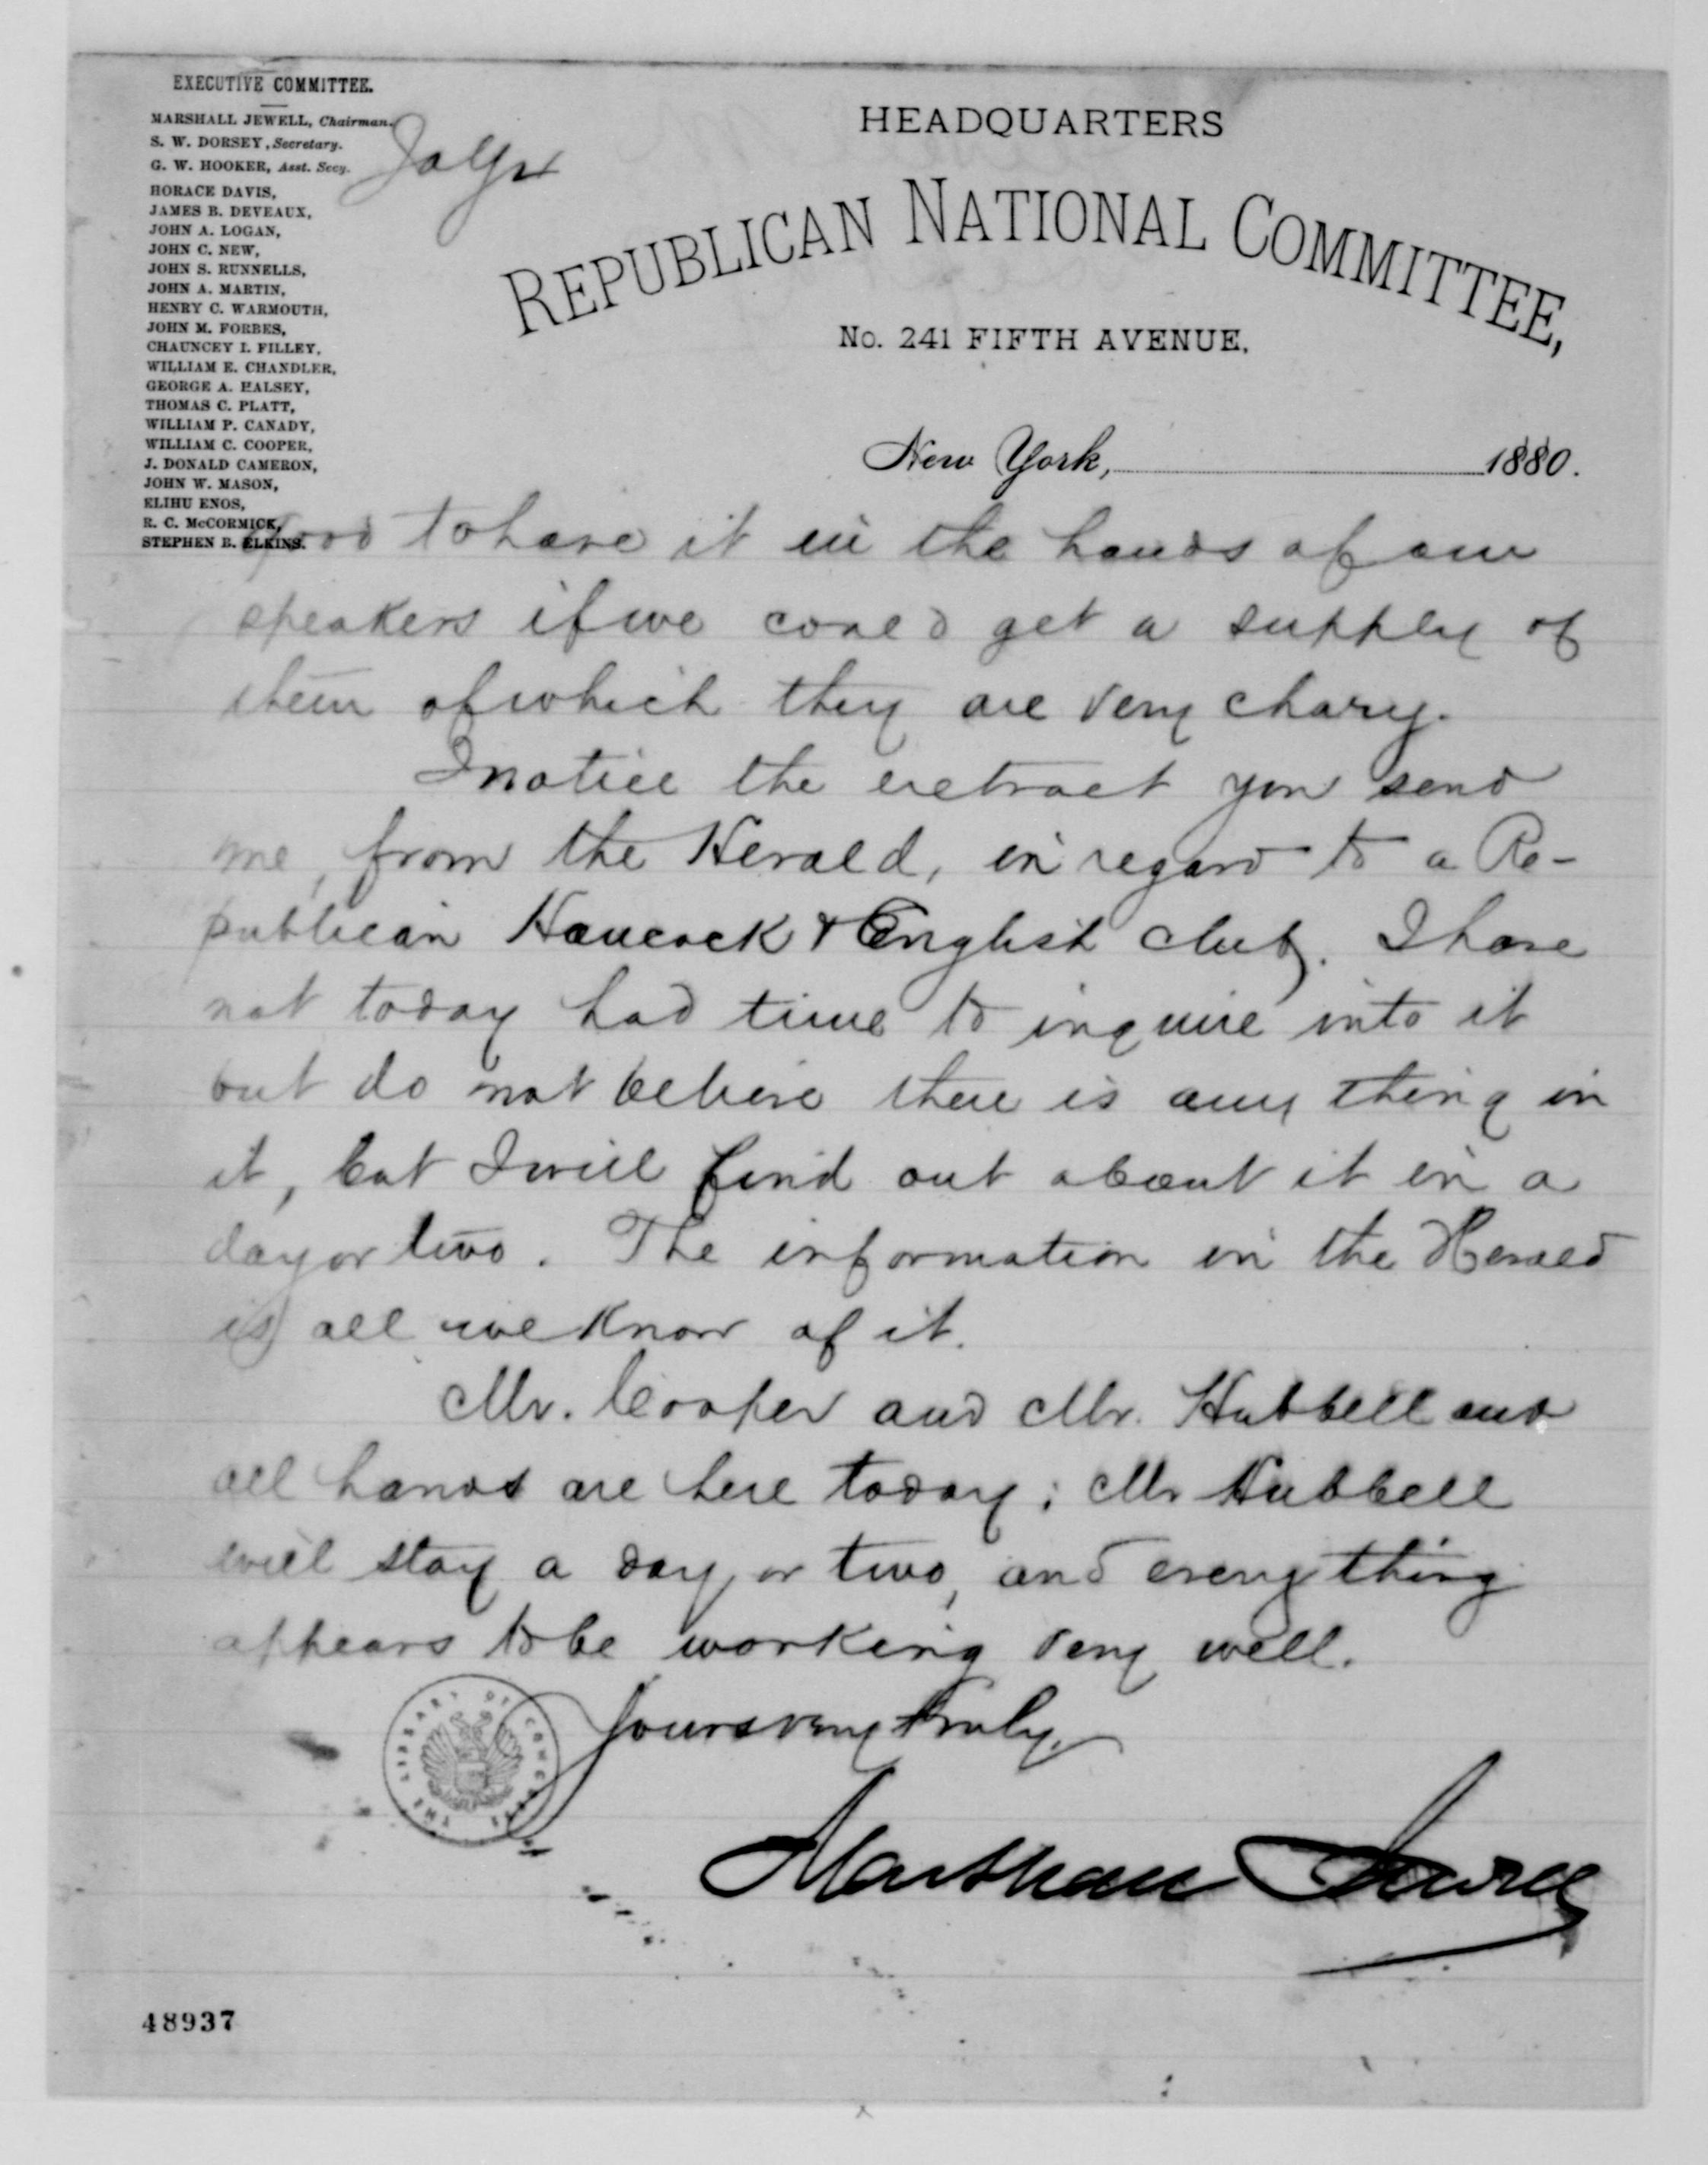 EXECUTIVE COMMITTEE.
MARSHALL JEWELL, Chairman.
S. W. DORSEY, Secretary.
G. W. HOOKER, Asst. Secy.
HORACE DAVIS,
JAMES B. DEVEAUX,
JOHN A. LOGAN,
JOHN C. NEW,
JOHN S. RUNNELLS,
JOHN A. MARTIN,
HENRY C. WARMOUTH,
JOHN M. FORBES,
CHAUNCEY I. FILLEY,
WILLIAM E. CHANDLER,
GEORGE A. HALSEY,
THOMAS C. PLATT,
WILLIAM P. CANADY,
WILLIAM C. COOPER,
J. DONALD CAMERON,
JOHN W. MASON,
ELIHU ENOS,
R. C. McCORMICK,
STEPHEN B. ELKINS.
HEADQUARTERS
REPUBLICAN NATIONAL COMMITTEE,
No. 241 FIFTH AVENUE.
New York, 1880.
good to have it in the hands of our
speakers if we could get a supply of
them of which they are very chary.
I notice the extract you send
me, from the Herald, in regard to a Re-
publican Hancock & English club. I have
not today had time to inquire into it
but do not believe there is any thing in
it, but I will find out about it in a
day or two. The information in the Herald
is all we know of it.
Mr. Cooper and Mr. Hubbell and
all hands are here today; Mr Hubbell
will stay a day or two, and everything
appears to be working very well.
Yours very truly,
Marshall Jewell
THE LIBRARY OF CONGRESS
48937